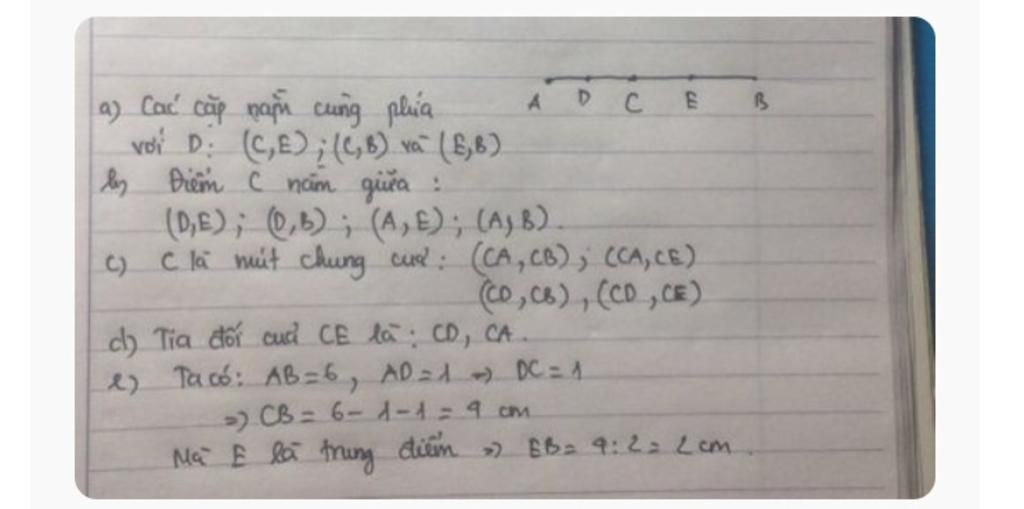 A D C E B
a) Các cặp nằm cùng phía
với D: (C,E) ; (C,B) và (E,B)
b) Điểm C nằm giữa :
(D,E) ; (D,B) ; (A,E) ; (A,B).
c) C là mút chung của : (CA,CB) ; (CA,CE)
(CD,CB) , (CD,CE)
d) Tia đối của CE là : CD, CA.
e) Ta có: AB=6, AD=1 => DC=1
=> CB = 6-1-1 = 4 cm
Mà E là trung điểm => EB= 4:2= 2 cm.